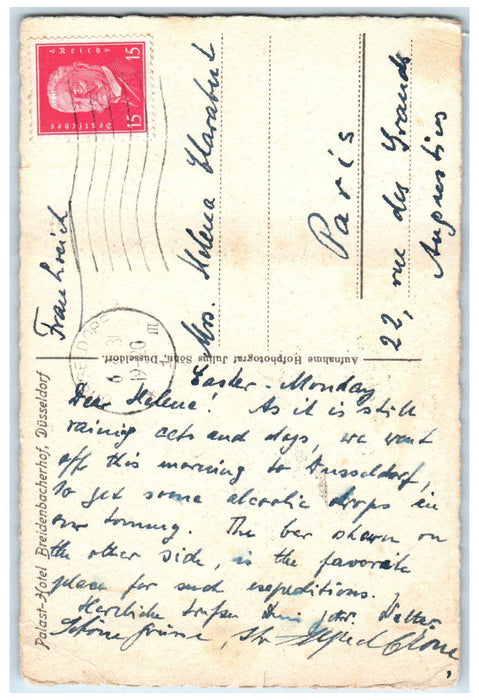 Deutsches
Reich
15 15
Frankreich
Mrs. Helena
Paris
22, rue des Grands
Augustins
DÜSSELDORF
Aufnahme Hofphotograf Julius Söhn, Düsseldorf.
Palast-Hotel Breidenbacherhof, Düsseldorf
Easter-Monday
Dear Helene! As it is still
raining cats and dogs, we went
off this morning to Dusseldorf,
to get some alcoolic drops in
our tommy. The bar shown on
the other side, is the favorite
place for such expeditions.
Herzliche Walter.
Ihr Alfred